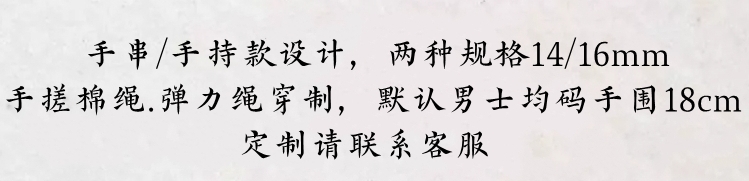 手串/手持款设计，两种规格14/16mm
手搓棉绳.弹力绳穿制，默认男士均码手围18cm
定制请联系客服